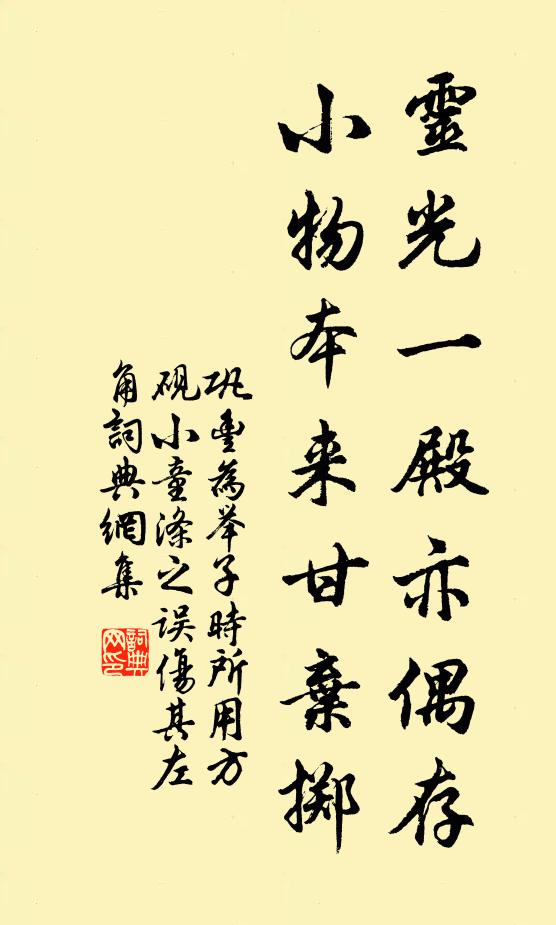 靈光一殿亦偶存
小物本来甘棄擲
巩豊為举子時所用方
硯小童滌之误傷其左
角詞典網集
詞典网印